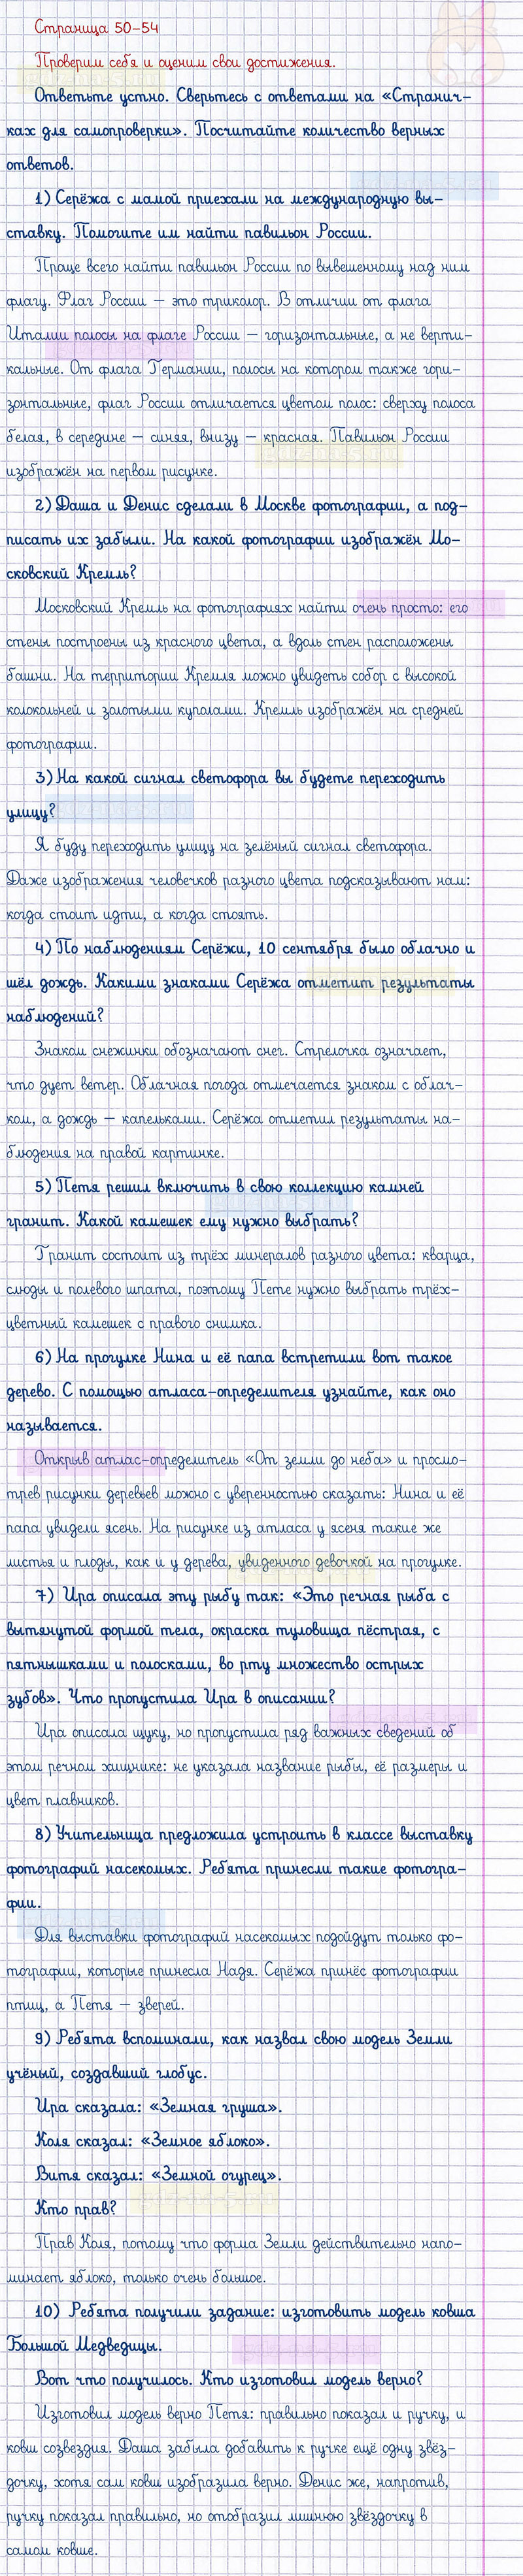 Страница 50-54
Проверим себя и оценим свои достижения.
Ответьте устно. Сверьтесь с ответами на «Странич-
ках для самопроверки». Посчитайте количество верных
ответов.
1) Серёжа с мамой приехали на международную вы-
ставку. Помогите им найти павильон России.
Проще всего найти павильон России по вывешенному над ним
флагу. Флаг России – это триколор. В отличии от флага
Италии полосы на флаге России – горизонтальные, а не верти-
кальные. От флага Германии, полосы на котором также гори-
зонтальные, флаг России отличается цветом полос: сверху полоса
белая, в середине – синяя, внизу – красная. Павильон России
изображён на первом рисунке.
2) Даша и Денис сделали в Москве фотографии, а под-
писать их забыли. На какой фотографии изображён Мо-
сковский Кремль?
Московский Кремль на фотографиях найти очень просто: его
стены построены из красного цвета, а вдоль стен расположены
башни. На территории Кремля можно увидеть собор с высокой
колокольней и золотыми куполами. Кремль изображён на средней
фотографии.
3) На какой сигнал светофора вы будете переходить
улицу?
Я буду переходить улицу на зелёный сигнал светофора.
Даже изображения человечков разного цвета подсказывают нам:
когда стоит идти, а когда стоять.
4) По наблюдениям Серёжи, 10 сентября было облачно и
шёл дождь. Какими знаками Серёжа отметит результаты
наблюдений?
Знаком снежинки обозначают снег. Стрелочка означает,
что дует ветер. Облачная погода отмечается знаком с облач-
ком, а дождь – капельками. Серёжа отметил результаты на-
блюдения на правой картинке.
5) Петя решил включить в свою коллекцию камней
гранит. Какой камешек ему нужно выбрать?
Гранит состоит из трёх минералов разного цвета: кварца,
слюды и полевого шпата, поэтому Пете нужно выбрать трёх-
цветный камешек с правого снимка.
6) На прогулке Нина и её папа встретили вот такое
дерево. С помощью атласа-определителя узнайте, как оно
называется.
Открыв атлас-определитель «От земли до неба» и просмо-
трев рисунки деревьев можно с уверенностью сказать: Нина и её
папа увидели ясень. На рисунке из атласа у ясеня такие же
листья и плоды, как и у дерева, увиденного девочкой на прогулке.
7) Ира описала эту рыбу так: «Это речная рыба с
вытянутой формой тела, окраска туловища пёстрая, с
пятнышками и полосками, во рту множество острых
зубов». Что пропустила Ира в описании?
Ира описала щуку, но пропустила ряд важных сведений об
этом речном хищнике: не указала название рыбы, её размеры и
цвет плавников.
8) Учительница предложила устроить в классе выставку
фотографий насекомых. Ребята принесли такие фотогра-
фии.
Для выставки фотографий насекомых подойдут только фо-
тографии, которые принесла Надя. Серёжа принёс фотографии
птиц, а Петя – зверей.
9) Ребята вспоминали, как назвал свою модель Земли
учёный, создавший глобус.
Ира сказала: «Земная груша».
Коля сказал: «Земное яблоко».
Витя сказал: «Земной огурец».
Кто прав?
Прав Коля, потому что форма Земли действительно напо-
минает яблоко, только очень большое.
10) Ребята получили задание: изготовить модель ковша
Большой Медведицы.
Вот что получилось. Кто изготовил модель верно?
Изготовил модель верно Петя: правильно показал и ручку, и
ковш созвездия. Даша забыла добавить к ручке ещё одну звёз-
дочку, хотя сам ковш изобразила верно. Денис же, напротив,
ручку показал правильно, но отобразил лишнюю звёздочку в
самом ковше.